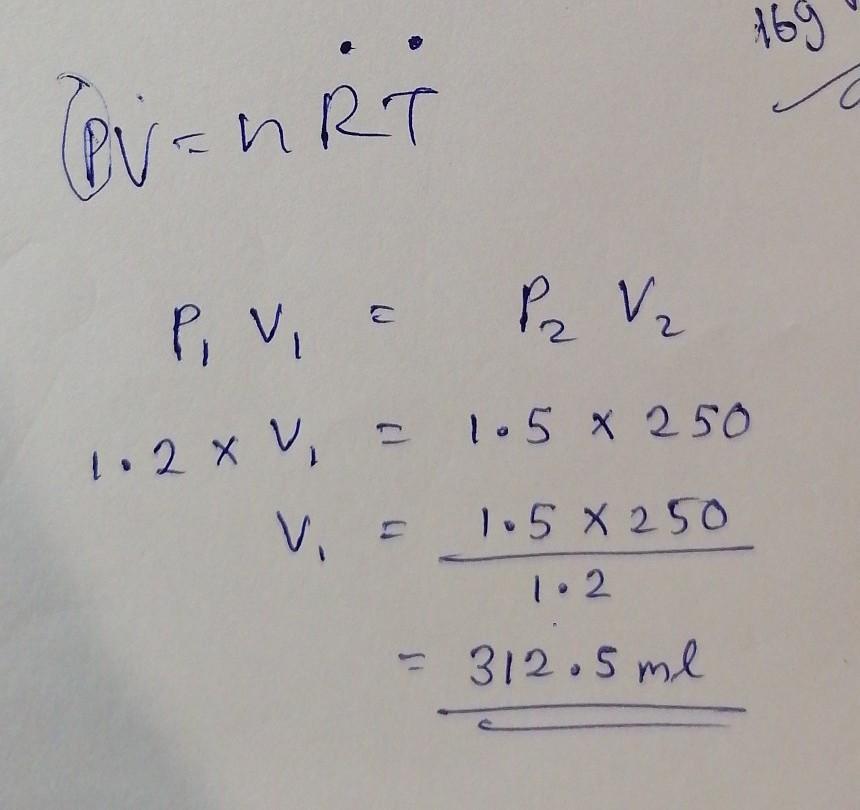 169
PV = nRT
P₁ V₁ = P₂ V₂
1.2 × V₁ = 1.5 × 250
V₁ = 1.5 × 250
1.2
= 312.5 ml